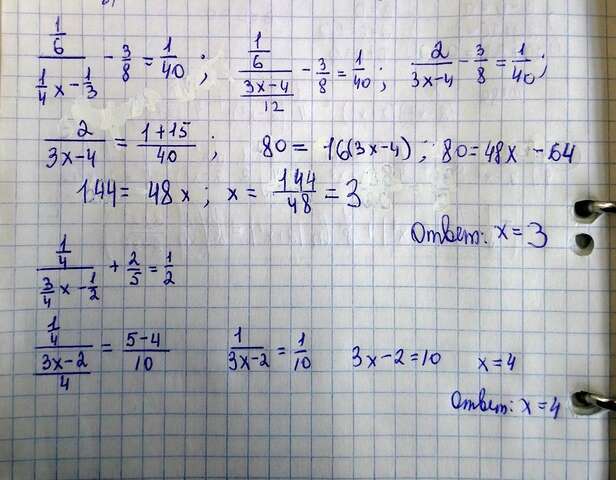 (1/6)/(1/4 x - 1/3) - 3/8 = 1/40 ; (1/6)/((3x-4)/12) - 3/8 = 1/40 ; 2/(3x-4) - 3/8 = 1/40 ;
2/(3x-4) = (1+15)/40 ; 80 = 16(3x-4) ; 80 = 48x - 64
144 = 48x ; x = 144/48 = 3
Ответ: x = 3
(1/4)/(3/4 x - 1/2) + 2/5 = 1/2
(1/4)/((3x-2)/4) = (5-4)/10 1/(3x-2) = 1/10 3x-2 = 10 x = 4
Ответ: x = 4